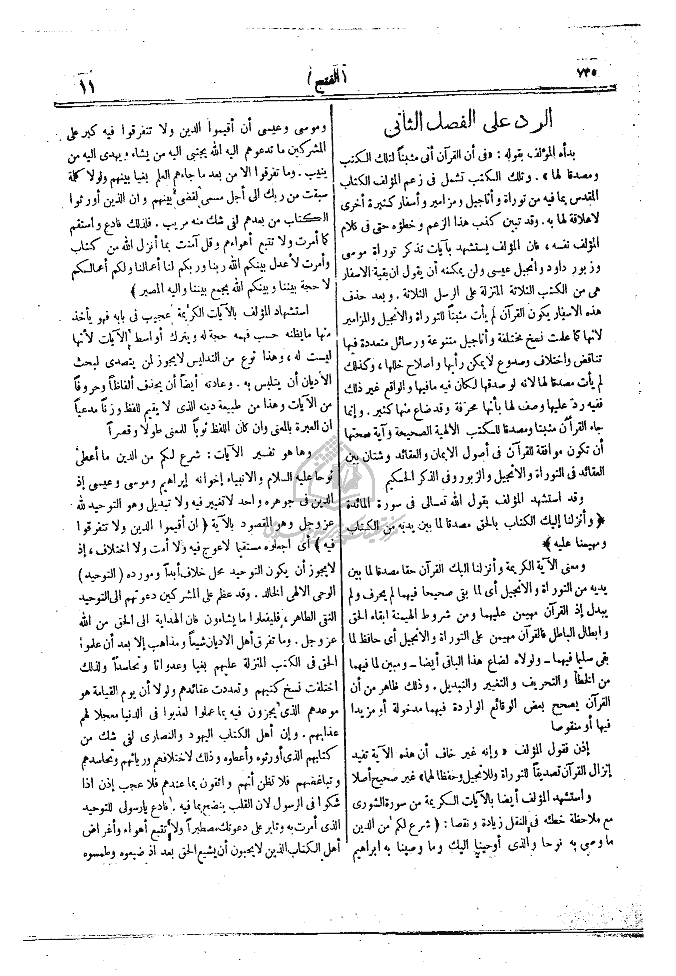 ٧٣٥
(الفتح)
١١
الرد على الفصل الثانى
بدأه المؤلف بقوله : «فى أن القرآن أتى مثبتاً لتلك الكتب
ومصدقا لها» . وتلك الكتب تشمل فى زعم المؤلف الكتاب
المقدس بما فيه من توراة وأناجيل ومزامير وأسفار كثيرة أخرى
لاعلاقة لها به . وقد تبين كذب هذا الزعم وخطؤه حتى فى كلام
المؤلف نفسه ، فان المؤلف يستشهد بآيات تذكر توراة موسى
وزبور داود وانجيل عيسى ولن يمكنه أن يقول ان بقية الاسفار
هى من الكتب الثلاثة المنزلة على الرسل الثلاثة . وبعد حذف
هذه الاسفار يكون القرآن لم يأت مثبتاً للتوراة والانجيل والمزامير
لانها كما علمت نسخ مختلفة وأناجيل متنوعة ورسائل متعددة فيها
تناقض واختلاف وصدوع لايمكن رأبها وإصلاح خللها ، وكذلك
لم يأت مصدقا لها لانه لو صدقها لكان فيه مافيها والواقع غير ذلك
ففيه رد عليها ووصف لها بأنها محرفة وقد ضاع منها كثير . وإنما
جاء القرآن مثبتا ومصدقا للكتب الالهية الصحيحة وآية صحتها
أن تكون موافقة القرآن فى أصول الايمان والعقائد وشتان بين
العقائد فى التوراة والانجيل والزبور وفى الذكر الحكيم
وقد استشهد المؤلف بقول الله تعالى فى سورة المائدة
﴿وأنزلنا إليك الكتاب بالحق مصدقا لما بين يديه من الكتاب
ومهيمنا عليه﴾
ومعنى الآية الكريمة وأنزلنا اليك القرآن حقا مصدقا لما بين
يديه من التوراة والانجيل أى لما بقى صحيحا فيهما لم يحرف ولم
يبدل إذ القرآن مهيمن عليهما ومن شروط الهيمنة ابقاء الحق
وابطال الباطل فالقرآن مهيمن على التوراة والانجيل أى حافظ لما
بقى سليما فيهما ــ ولولاه لضاع هذا الباقى أيضا ــ ومبين لما فيهما
من الخطأ والتحريف والتغيير والتبديل . وذلك ظاهر من أن
القرآن يصحح بعض الوقائع الواردة فيهما مدخولة أو مزيدا
فيها أو منقوصا
إذن فقول المؤلف «وإنه غير خاف أن هذه الآية تفيد
إنزال القرآن تصديقاً للتوراة وللانجيل وحفظا لها» غير صحيح أصلا
واستشهد المؤلف أيضا بالآيات الكريمة من سورة الشورى
مع ملاحظة خطئه فى النقل زيادة ونقصا : ﴿شرع لكم من الدين
ما وصى به نوحا والذى أوحينا اليك وما وصينا به ابراهيم
وموسى وعيسى أن أقيموا الدين ولا تتفرقوا فيه كبر على
المشركين ما تدعوهم اليه الله يجتبى اليه من يشاء ويهدى اليه من
ينيب . وما تفرقوا الا من بعد ما جاءهم العلم بغيا بينهم ولولا كلمة
سبقت من ربك الى أجل مسمى لقضى بينهم وان الذين أورثوا
الكتاب من بعدهم لفى شك منه مريب . فلذلك فادع واستقم
كما أمرت ولا تتبع أهواءهم وقل آمنت بما أنزل الله من كتاب
وأمرت لأعدل بينكم الله ربنا وربكم لنا أعمالنا ولكم أعمالكم
لا حجة بيننا وبينكم الله يجمع بيننا واليه المصير﴾
استشهاد المؤلف بالآيات الكريمة عجيب فى بابه فهو يأخذ
منها مايظنه حسب فهمه حجة له ويترك أواسط الآيات لأنها
ليست له ، وهذا نوع من التدليس لايجوز لمن يتصدى لبحث
الأديان أن يتلبس به . وعادته أيضاً أن يحذف ألفاظاً وحروفاً
من الآيات وهذا من طبيعة دينه الذى لا يقيم للفظ وزناً مدعياً
ان العبرة بالمعنى وان كان اللفظ ثوباً للمعنى طولا وقصراً
وها هو تفسير الآيات : شرع لكم من الدين ما أعطى
نوحا عليه السلام والانبياء إخوانه إبراهيم وموسى وعيسى إذ
الدين فى جوهره واحد لاتغيير فيه ولا تبديل وهو التوحيد لله
عز وجل وهو المقصود بالآية ﴿ان أقيموا الدين ولا تتفرقوا
فيه﴾ أى اجعلوه مستقيما لاعوج فيه ولا أمت ولا اختلاف ، إذ
لايجوز أن يكون التوحيد محل خلاف أبداً ومورده (التوحيد)
الوحى الالهى الخالد . وقد عظم على المشركين دعوتهم الى التوحيد
النقى الطاهر ، فليفعلوا ما يشاءون فان الهداية الى الحق من الله
عز وجل . وما تفرق أهل الاديان شيعاً ومذاهب إلا بعد أن علموا
الحق فى الكتب المنزلة عليهم بغيا وعدوانا وتحاسداً ولذلك
اختلفت نسخ كتبهم وتعددت عقائدهم ولولا أن يوم القيامة هو
موعدهم الذى يجزون فيه بما عملوا لعذبوا فى الدنيا معجلا لهم
عذابهم . وإن أهل الكتاب اليهود والنصارى لفى شك من
كتابهم الذى أورثوه وأعطوه وذلك لاختلافهم وريائهم وتحاسدهم
وتباغضهم فلا تظن أنهم واثقون بما عندهم فلا عجب إذن اذا
شكوا فى الرسول لان القلب ينضح بما فيه . فادع يارسولى للتوحيد
الذى أمرت به وثابر على دعوتك مصطبراً ولا تتبع أهواء وأغراض
أهل الكتاب الذين لايحبون أن يشيع الحق بعد اذ ضيعوه وطمسوه